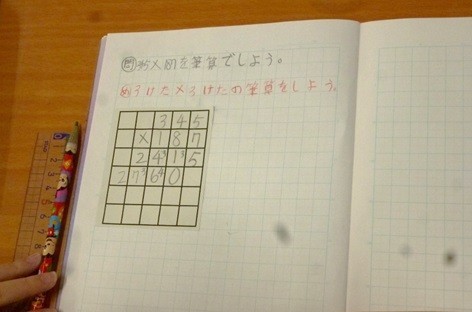 問 345×187を筆算でしよう。
め 3けた×3けたの筆算をしよう。
3 4 5
×1 8 7
2 4³ 1³ 5
2 7³ 6⁴ 0